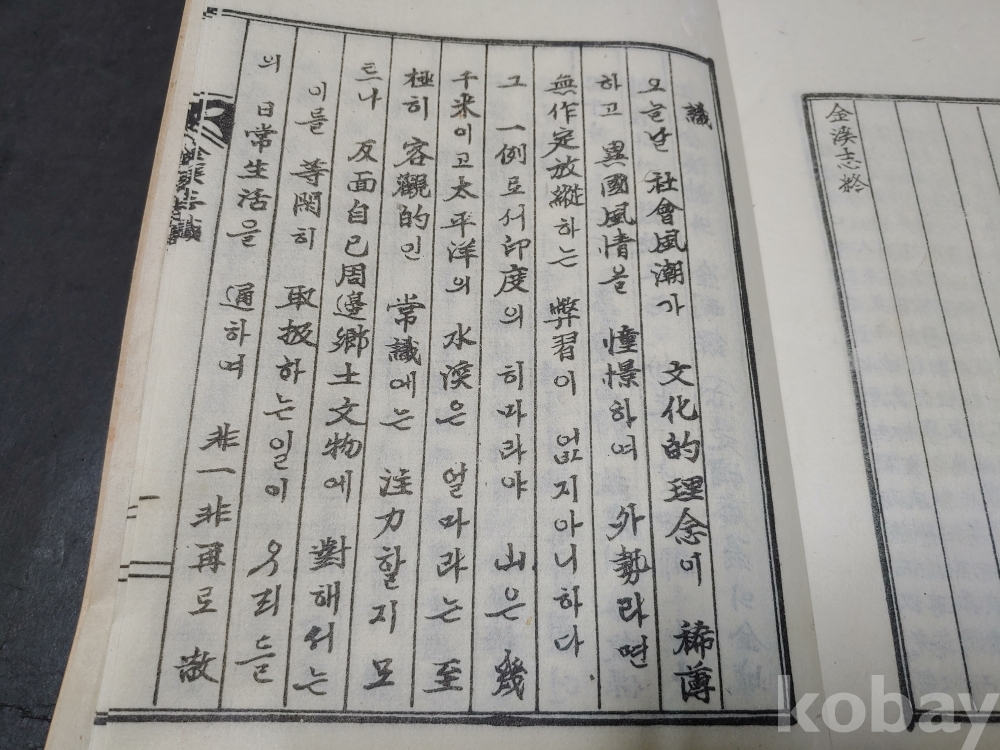 金溪志終
識
오늘날 社會風潮가 文化的理念이 稀薄
하고 異國風情을 憧憬하며 外勢라면
無作定放縱하는 弊習이 없지아니하다
그 一例로서 印度의 히마라야 山은 幾
千米이고 太平洋의 水深은 얼마라는 至
極히 客觀的인 常識에는 注力할지 모
르나 反面自己周邊鄕土文物에 對해서는
이를 等閑히 取扱하는일이 우리들
의 日常生活을 通하여 非一非再로
kobay